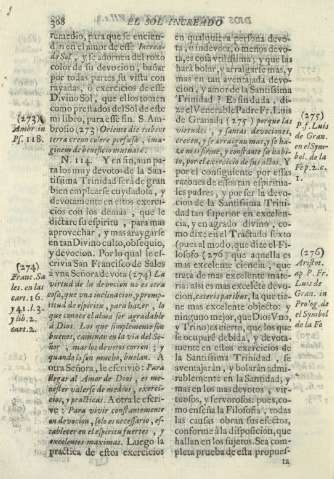 308
EL SOL INCREADO
remedio, para que se encien-
dan en el amor de este Increa-
do Sol, y le adornen del rojto
color de su devocion, basta
por todas partes su vista con
rayadas, ò exercicios de este
Divino Sol, que ellos tomen
como prestados del Sol de este
mi libro, para esse fin. S. Am-
brosio (273) Oriente die rubet
terra cœnu culore perfusa, ima-
N. 114. Y en fin, aun pa-
ra los muy devotos de la San-
tissima Trinidad serà de gran
bien emplearse cuydadosa, y
devotamente en estos exerci-
cios con los demàs, que le
dictare su espiritu, para mas
aprovechar, y mas avergarse
en tan Divino culto, obsequio,
y devocion. Por lo qual le es-
crivia San Francisco de Sales
à una Señora devota (274) La
virtud de la devocion no es otra
cosa, que una inclinacion, y promp-
titud de espiritu, para hazer, lo
que conoce el alma ser agradable
à Dios. Los que simplemente son
buenos, caminan en la via del Se-
ñor, mas los devotos corren: y
quando lo son mucho, buelan. A
otra Señora, le escrivió: Para
llegar al Amor de Dios, es me-
nester valerse de medios, exerci-
cios, y practicas. A otra le escri-
ve: Para vivir constantemente
en devocion, solo es necessario, es-
tablecer en el espiritu fuertes, y
excelentes maximas. Luego la
practica de estos exercicios
en qualquiera persona devo-
ta, ò indevota, ò menos devo-
ta, es cosa vtilissima; y que las
harà bolar, ò arraygarse mas, y
mas en tan aventajada devo-
cion, y amor de la Santissima
Trinidad? Es sin duda. di-
ze el Venerable Padre Fr. Luis
de Granada (275) porque las
virtudes, y santas devociones,
crecen, y se arraygan mas, y se ha-
por el consiguiente por essas
razones de essos tan esprimia-
les padres, y por ser la devo-
cion de la Santissima Trini-
dad tan superior en excelen-
cia, y en agrado divino, co-
mo dize este mi Tratado sixto
(pues al modo, que dize el Fi-
losofo (276) que aquella es
mas excelente ciencia, que
trata de mas excelente mate-
ria: assi es mas excelete devo-
cion, cæteris paribus, la que tie-
ne mas excelente objecto: y
ninguno mejor, que Dios Vno,
y Trino) es cierto, que los que
se ocuparè debida, y devota-
mente en estos exercicios de
la Santissima Trinidad, se
aventajaràn, y bolaràn admi-
rablemente en la Santidad, y
mas en los mas devotos, vir-
tuosos, y fervorosos: pues, co-
mo enseña la Filosofia, todas
las causas obran sus efectos,
conforme à la disposicion, que
hallan en los sujetos. Sea com-
pleta prueba de esta proposi-
(273)
Amor. in
Ps. 118.
(274)
Franc. Sa-
les. en las
cart. 16.
y 41. l. 3.
y lib. 2.
cart. 2.
(275)
P. f. Luis
de Gran.
en el Sym-
bol. de la
Fe p. 2. c.
1.
(276)
Arist.
ap P. Fr.
Luis de
Gran. in
Prolog. de
el Symbol
de la Fè